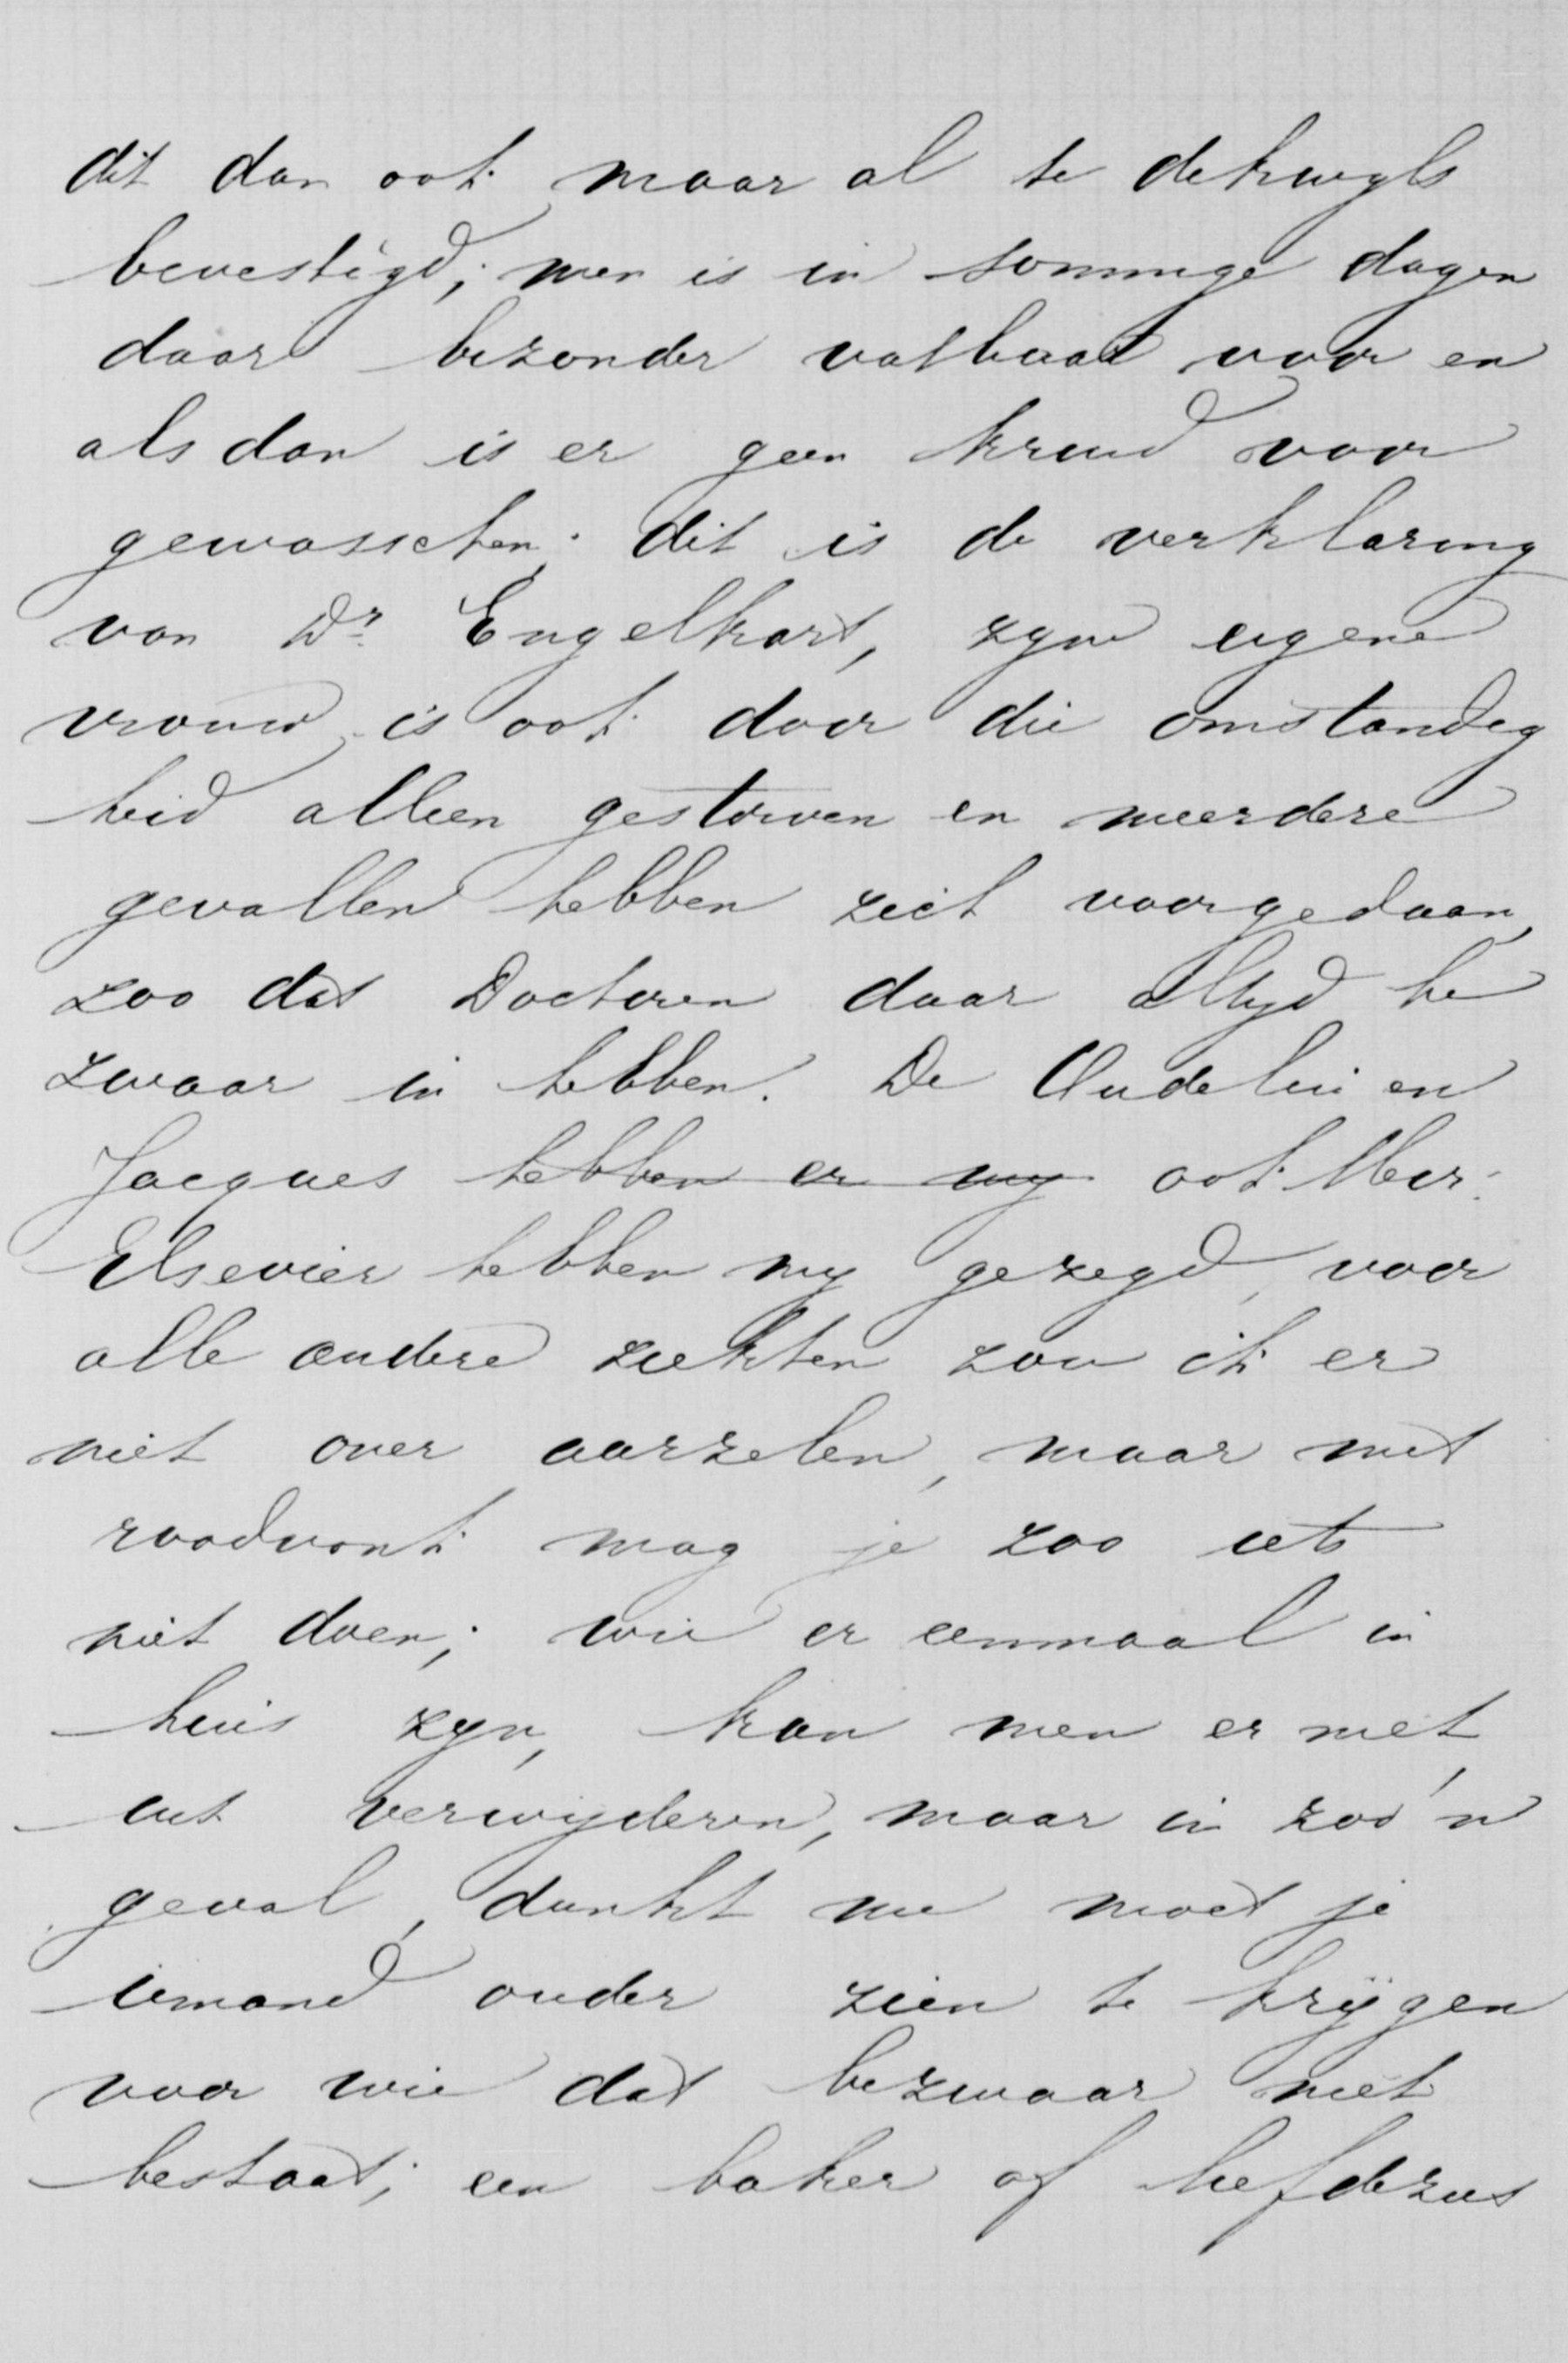 dit dan ook maar al te dekwyls
bevestigd; men is in sommige dagen
daar bizonder vatbaar voor en
als dan is er geen kruid voor
gewasschen; dit is de verklaring
van Dr. Engelkart, zyne eigene
vrouw is ook door die omstandig
heid alleen gestorven en meerdere
gevallen hebben zich voorgedaan,
zoo dat Doctoren daar altyd be
zwaar in hebben. De Oudelui en
Jacques hebben er my ook Mevr:
Elsevier hebben my gezegd, voor
alle andere ziekten zou ik er
niet over aarzelen, maar met
roodvonk mag je zoo iets
niet doen; wie er eenmaal in
huis zyn, kan men er niet
uit verwijderen, maar in zoo'n
geval, dunkt me moet je
iemand ouder zien te krijgen
voor wie dat bezwaar niet
bestaat; een baker of liefdezus